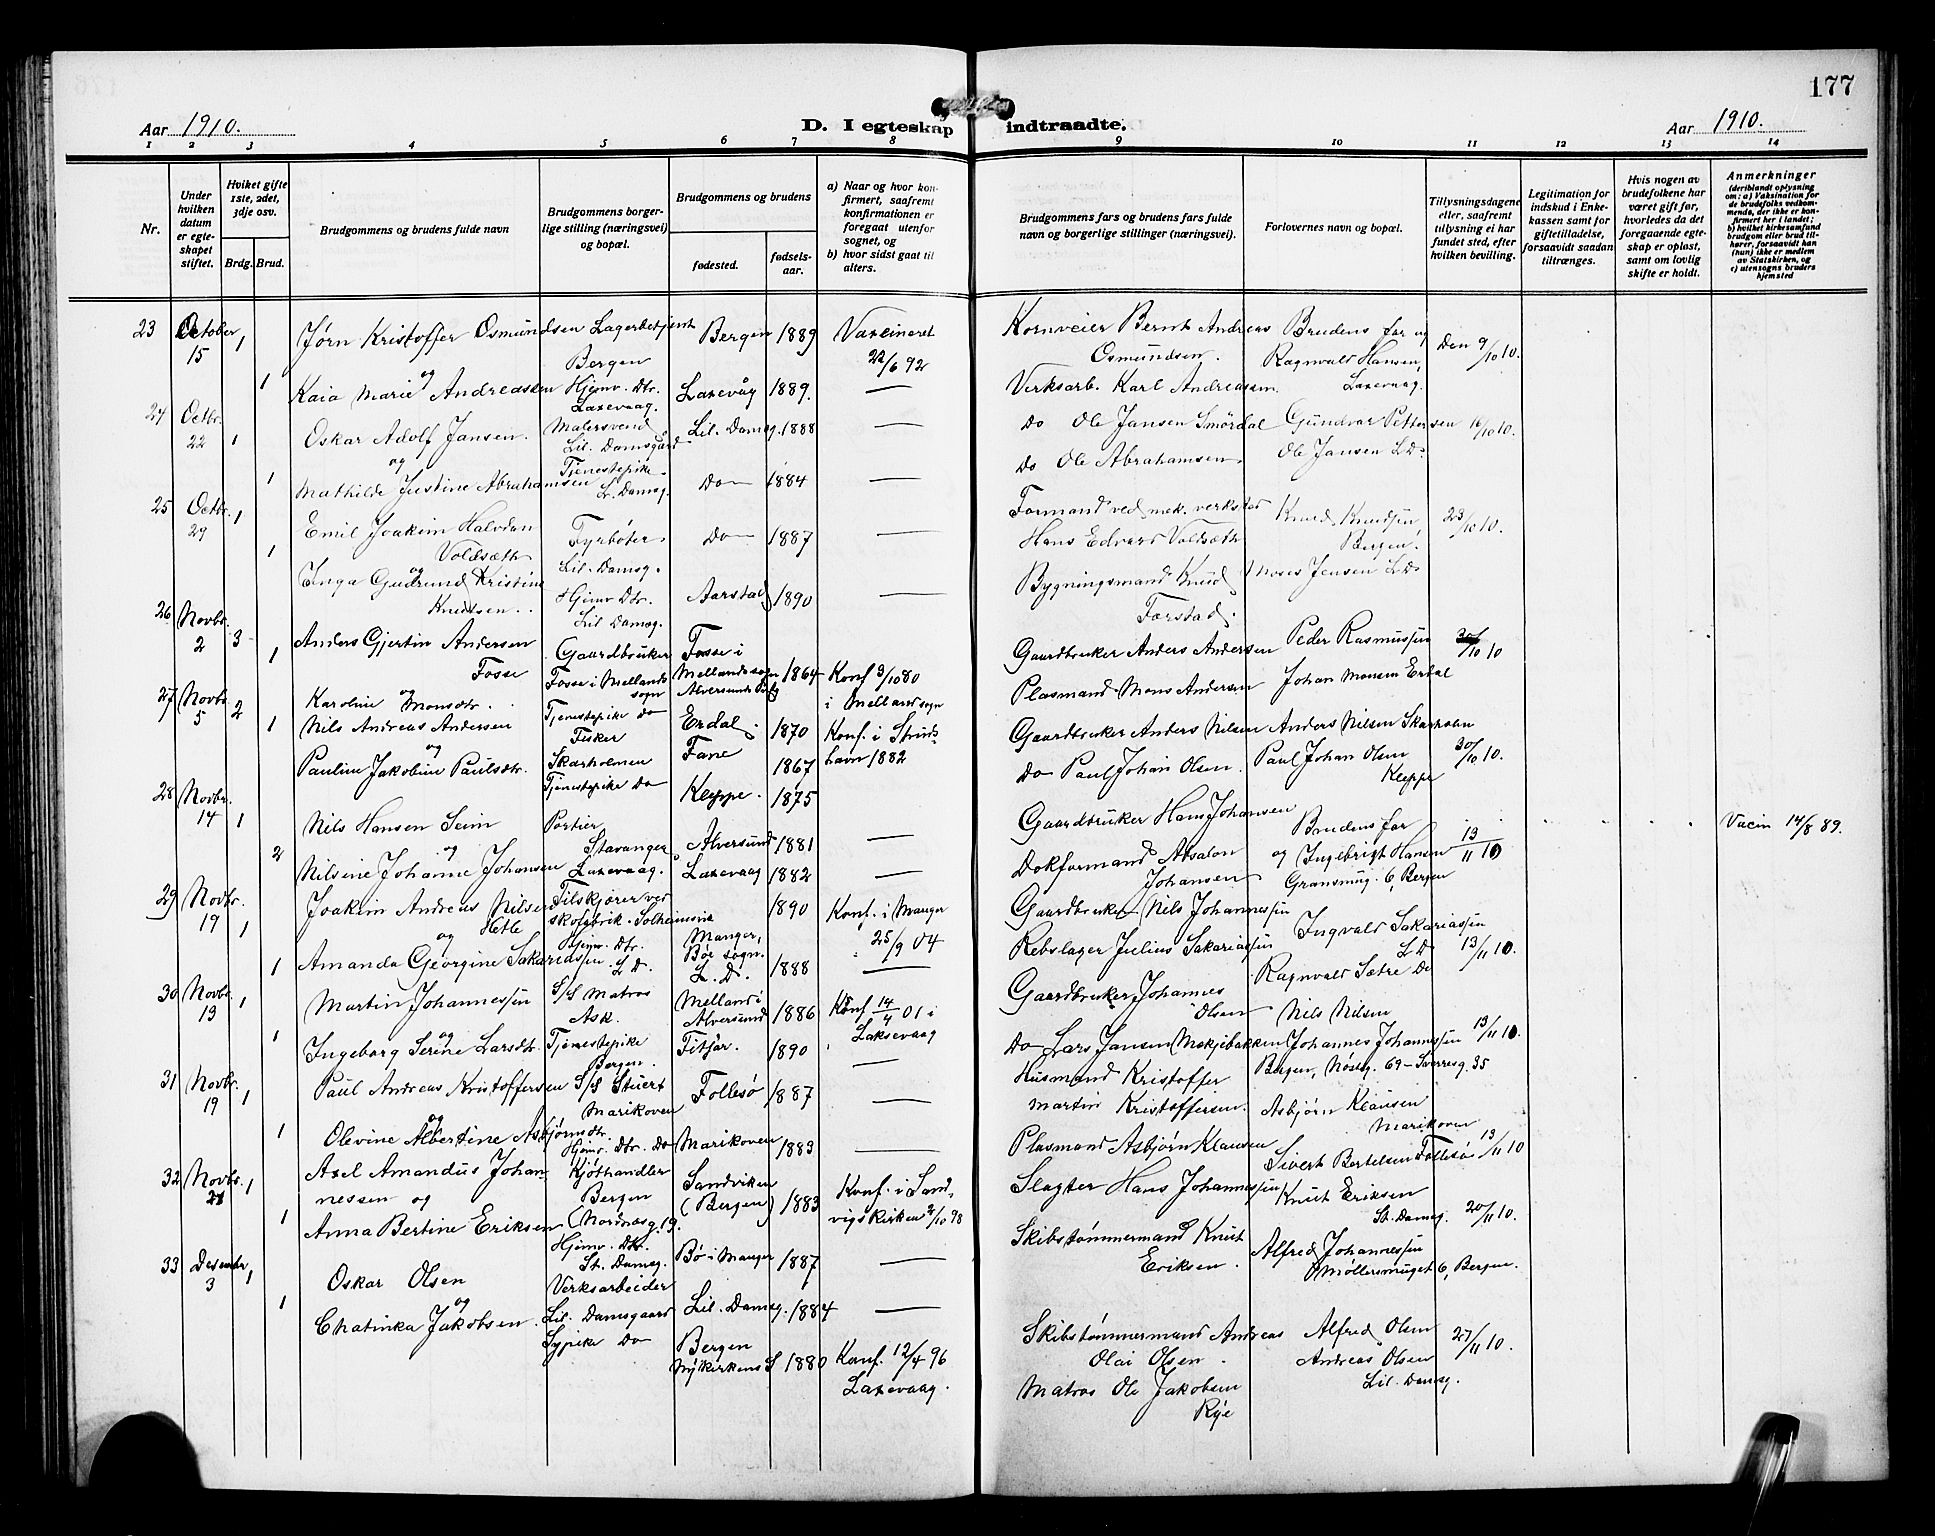 177
Aar 1910.
D. I egteskap indtraadte.
Aar 1910.
1 2 3 4 5 6 7 8 9 10 11 12 13 14
Nr.
Under hvilken datum er egteskapet stiftet.
Hvilket gifte 1ste, 2det, 3dje osv.
Brdg. Brud.
Brudgommens og brudens fulde navn
Brudgommens borgerlige stilling (næringsvei) og bopæl.
Brudgommens og brudens
fødested.
fødselsaar.
a) Naar og hvor konfirmert, saafremt konfirmationen er foregaat utenfor sognet, og
b) hvor sidst gaat til alters.
Brudgommens fars og brudens fars fulde navn og borgerlige stillinger (næringsvei).
Forlovernes navn og bopæl.
Tillysningsdagene eller, saafremt tillysning ei har fundet sted, efter hvilken bevilling.
Legitimation for indskud i Enkekassen samt for giftetilladelse, forsaavidt saadan tiltrænges.
Hvis nogen av brudefolkene har været gift før, hvorledes da det foregaaende egteskap er opløst, samt om lovlig skifte er holdt.
Anmerkninger
(deriblandt oplysning om: a) Vaksination for de brudefolks vedkommende, der ikke er konfirmert her i landet; b) hvilket kirkesamfund brudgom eller brud tilhører, forsaavidt han (hun) ikke er medlem av Statskirken, og c) utensogns bruders hjemsted
23 October 15 1 Jørn Kristoffer Osmundsen Lagerbetjent Bergen Bergen 1889 Vaxcineret 22/6 92 Kornveier Bernt Andreas Osmundsen. Brudens far og Ragnvald Hansen, Laxevaag. Den 9/10 10.
og
1 Kaia Marie Andreassen Hjemv. Dtr. Laxevaag. Laxevåg 1889. — Verksarb. Karl Andreassen
24 Octbr. 22 1 Oskar Adolf Jansen. Malersvend Lil. Damsgaard Lil. Damsg. 1888 — Do Ole Jansen Smørdal Gundvor Pettersen 16/10 10.
og
1 Mathilde Justine Abrahamsen Tjenestepike L. Damsg. Do 1884 — Do Ole Abrahamsen Ole Jansen L D.
25 Octbr. 29 1 Emil Joakim Halvdan Voldsæth Fyrbøter Lil. Damsg. Do 1887 — Formand ved mek. verksted Hans Edvard Voldsæth Knud Knudsen Bergen. 23/10 10.
og
1 Inga Gudrund Kristine Knudsen. Hjemv Dtr. Lil Damsg. Aarstad 1890 — Bygningsmand Knud Farstad. Moses Jensen L D
26 Novbr. 2 3 Anders Gjertin Andersen Fosse Gaardbruker Fosse i Mellands sogn Fosse i Mellandssogn Alversunds 1864 Konf 3/10 80 i Mellandsogn Gaardbruker Anders Andersen Peder Rasmussen 30/10 10
og
1 Karoline Monsdtr. Tjenestepike Do Erdal 1870 Plasmand Mons Andersen Johan Monsen Erdal
27 Novbr. 5 2 Nils Andreas Andersen Fisker Skarholmen Fane 1867 Konf. i Strudshavn 1882 Gaardbruker Anders Nilsen Anders Nilsen Skarholm 30/10 10.
og
1 Pauline Jakobine Paulsdtr. Tjenestepike Do Kleppe. 1875 Do Paul Johan Olsen. Paul Johan Olsen Kleppe
28 Novbr. 14 1 Nils Hansen Seim Portier Stavanger Alversund 1881 — Gaardbruker Hans Johansen Brudens far 13/11 10 Vacin 14/8 89.
og
2 Nilsine Johanne Johansen Laxevaag. Laxevaag 1882 — Dokformand Absalon Johansen og Ingebrigt Hansen Gransmug. 6, Bergen
29 Novbr. 19 1 Joakim Andreas Nilsen Hetle Tilskjærer ved skofabrik. Solheimsvik Manger, Bøe sogn. 1890 Konf. i Manger 25/9 04 Gaardbruker Nils Johannessen Ingvald Sakariassen L D 13/11 10.
og
1 Amanda Georgine Sakariassen Hjemv. Dtr. L D. L. D. 1888 — Rebslager Julius Sakariassen Ragnvald Sætre Do
30 Novbr. 13 1 Martin Johannessen S/S Matros Ask. Melland i Alversund 1886 Konf 14/4 01 i Laksevaag Gaardbruker Johannes Olsen Nils Nilsen 13/11 10.
og
1 Ingeborg Serine Larsdtr. Tjenestepike Bergen. Fitjar. 1890 — Do Lars Jansen Johannes Johannessen Bergen, Nøsteg. 69 – Sverresg. 35
31 Novbr. 19 1 Paul Andreas Kristoffersen S/S Stuert Marikoven Follesø 1887 — Husmand Kristoffer Martin Kristoffersen. Asbjørn Klausen Marikoven 13/11 10
og
1 Olevine Albertine Asbjørnsdtr. Hjemv. Dtr. Do Marikoven 1883 — Plasmand Asbjørn Klausen Sivert Bertelsen Follesø
32 Novbr. 21 1 Axel Amandus Johannessen og Kjøthandler Bergen (Nordnæsg. 19. Sandviken (Bergen) 1883 Konf. i Sandvigskirken 2/10 98 Slagter Hans Johannessen Knut Eriksen St. Damsg. 20/11 10.
1 Anna Bertine Eriksen Hjemv. Dtr. St. Damsg. Bø i Manger 1887 — Skibstømmermand Knut Eriksen. Alfred Johannessen Møllersmuget 6, Bergen.
33 Desember 3 1 Oskar Olsen Verksarbeider Lil. Damsgaard Lil. Damsg. 1884 — Skibstømmermand Andreas Olai Olsen. Alfred Olsen 27/11 10.
og
1 Chatinka Jakobsen. Sypike Do Bergen Nykirkens S 1880 Konf. 12/4 96 Laxevaag. Matros Ole Jakobsen Rye Andreas Olsen Lil. Damsg.